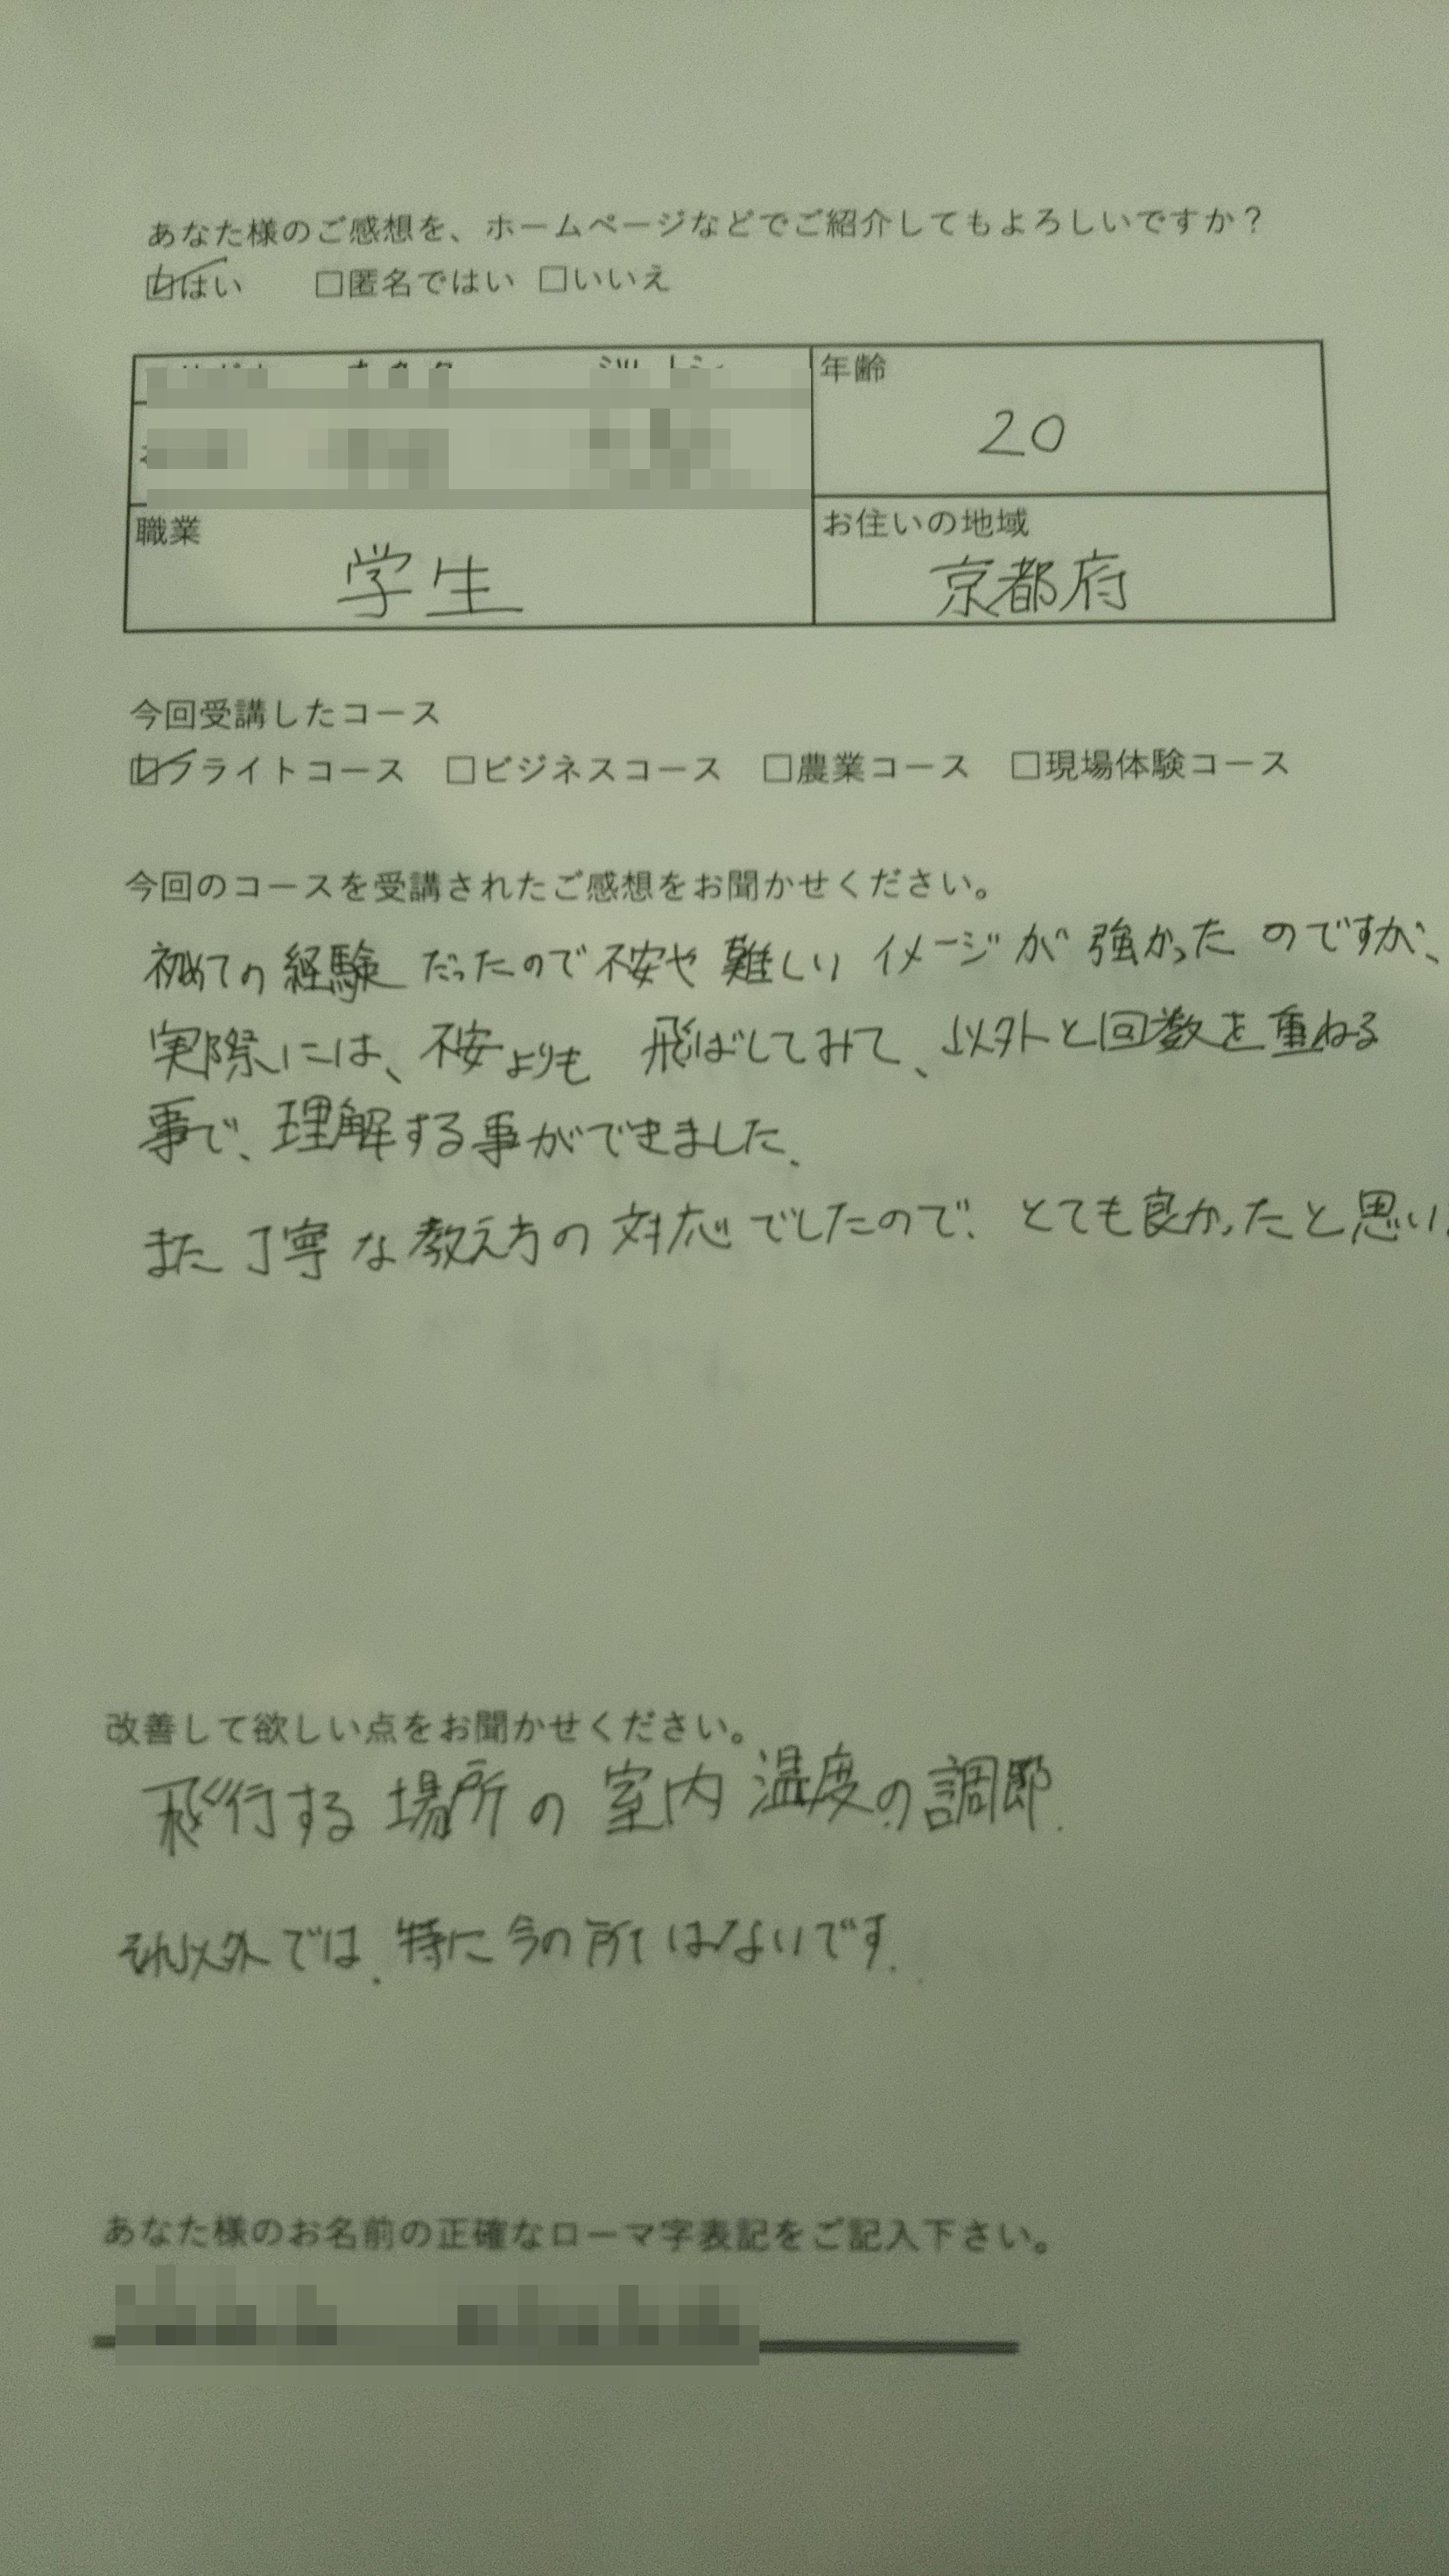 あなた様のご感想を、ホームページなどでご紹介してもよろしいですか？
☑はい □匿名ではい □いいえ
年齢
20
職業
学生
お住いの地域
京都府
今回受講したコース
☑フライトコース □ビジネスコース □農業コース □現場体験コース
今回のコースを受講されたご感想をお聞かせください。
初めての経験だったので不安や難しいイメージが強かったのですが、
実際には、不安よりも飛ばしてみて、以外と回数を重ねる
事で、理解する事ができました.
また丁寧な教え方の対応でしたので、とても良かったと思い
改善して欲しい点をお聞かせください。
飛行する場所の室内温度の調節.
それ以外では、特に今の所はないです.
あなた様のお名前の正確なローマ字表記をご記入下さい。